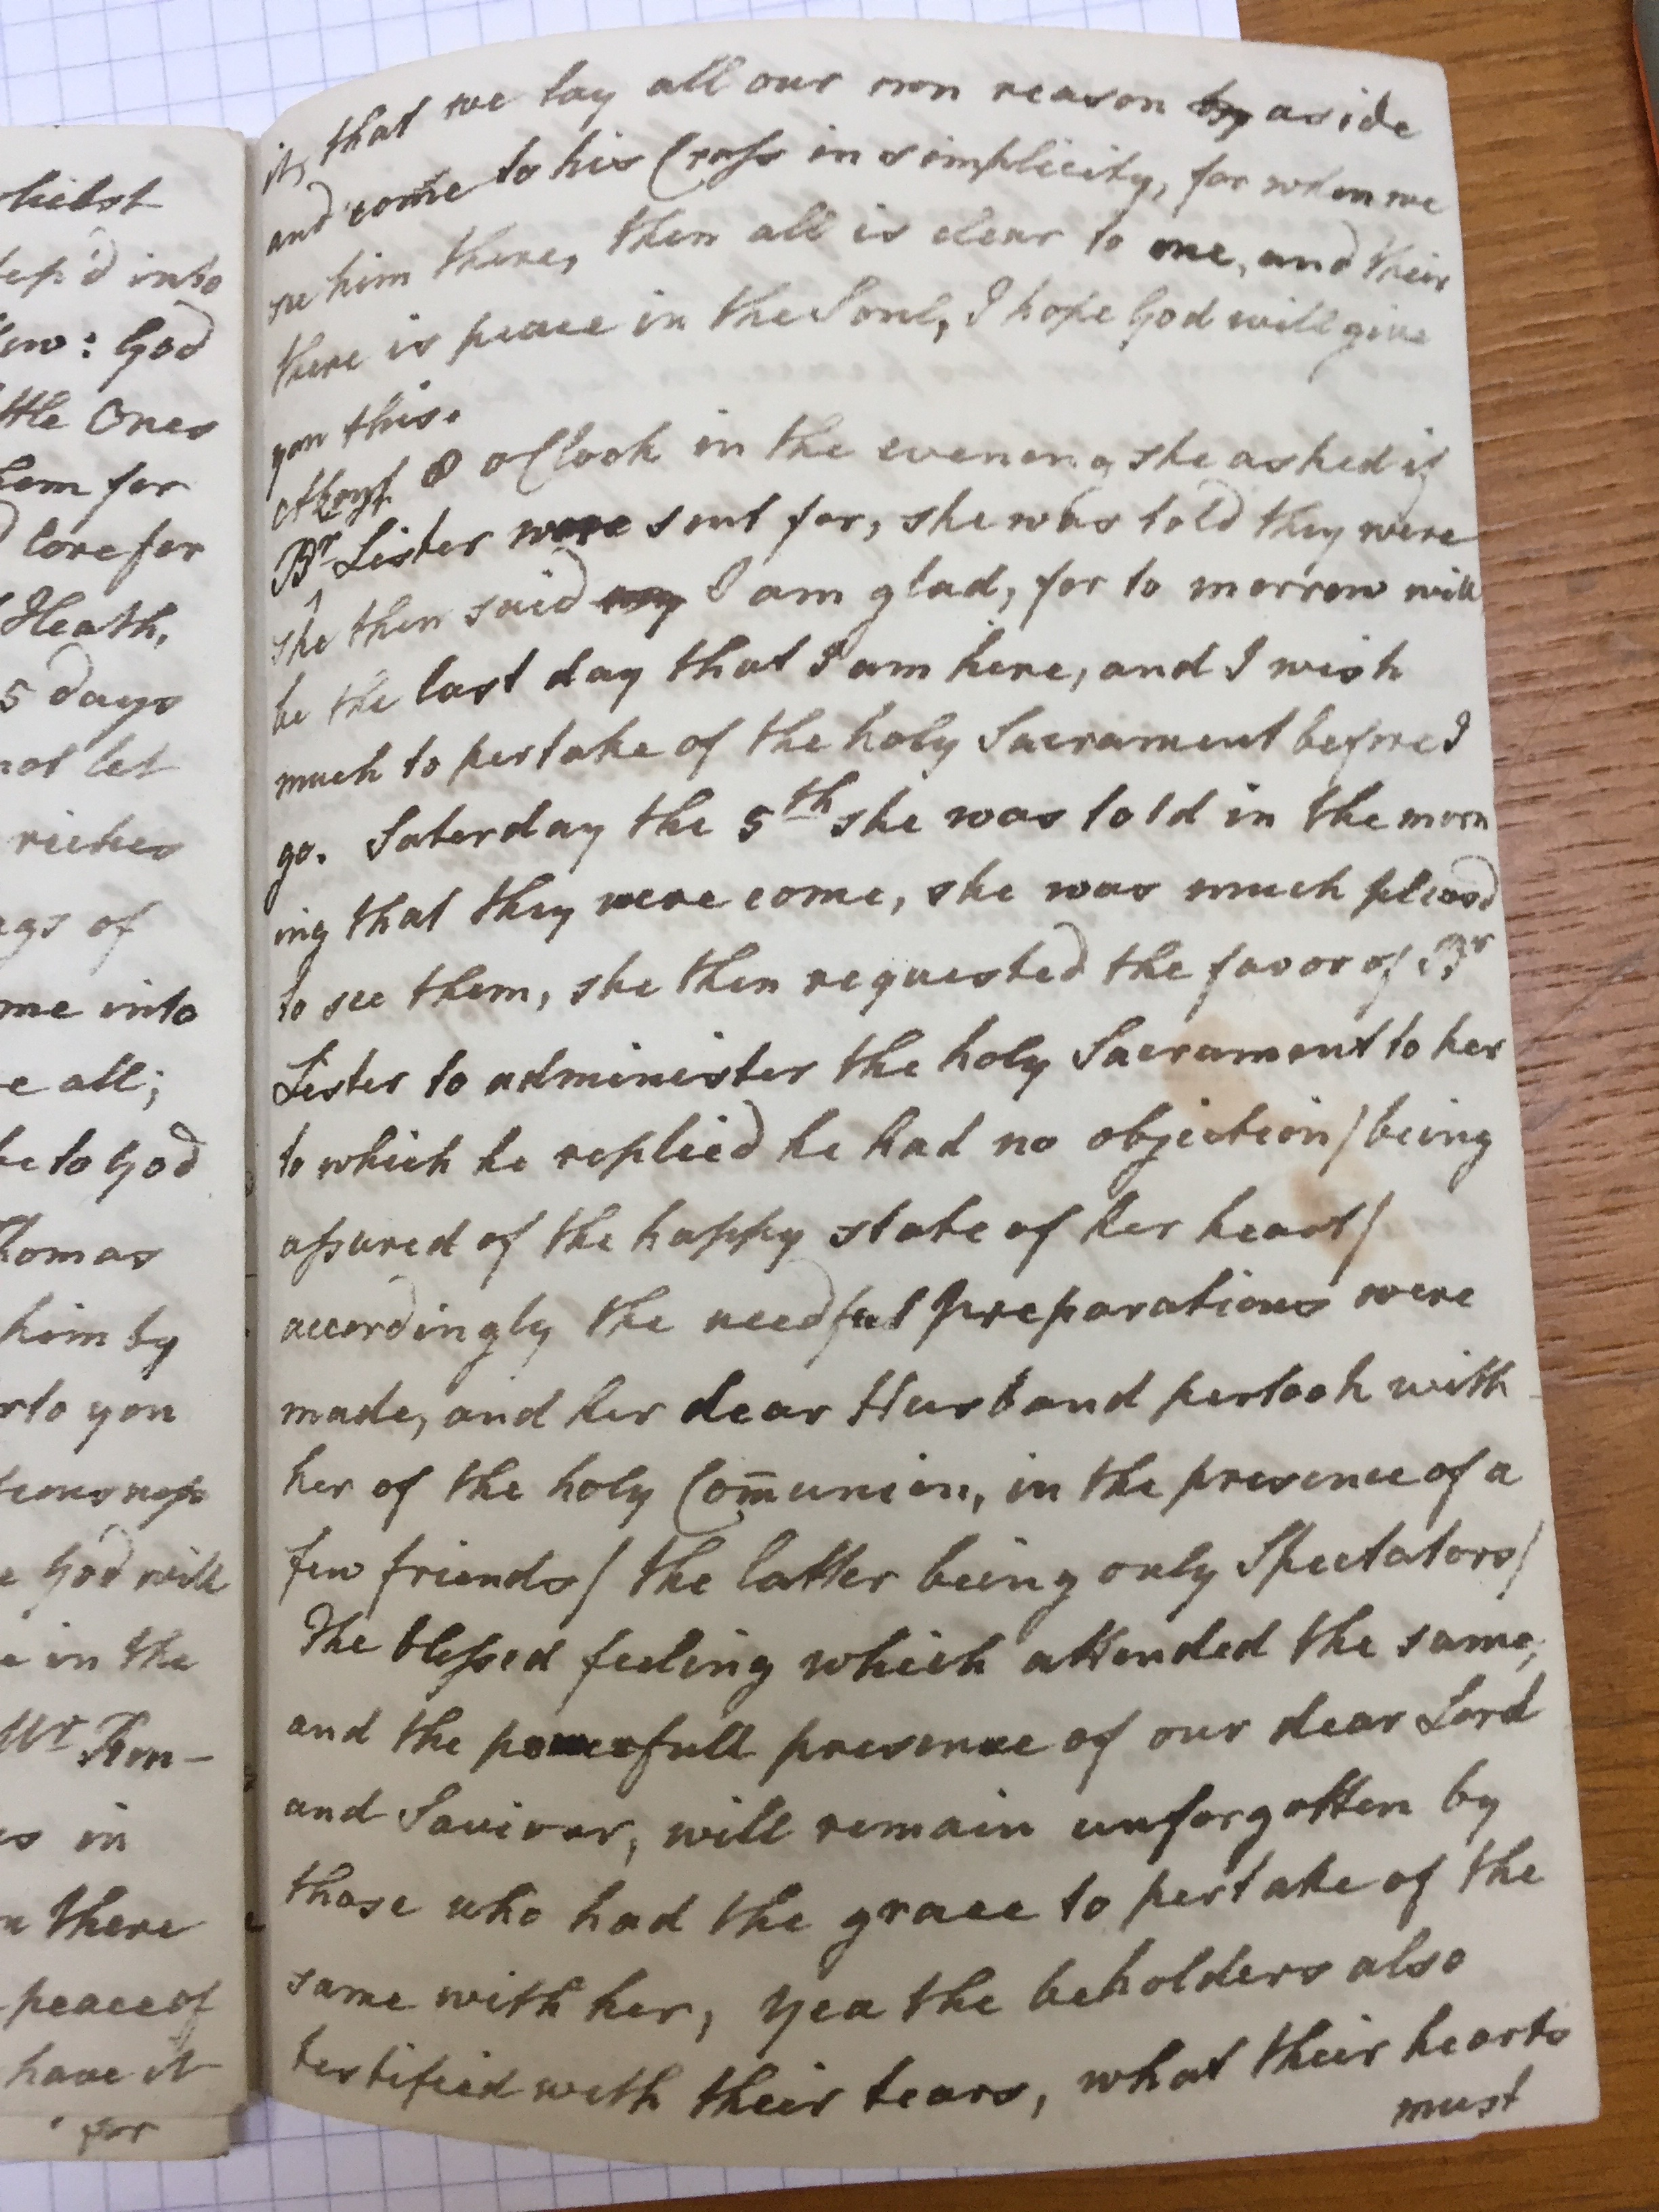 hilst
tep'd into
God
ttle Ones
hem for
love for
Heath,
5 days
not let
riches
ngs of
me into
e all;
be to God
homas
him by
r to you
God will
e in the
Mr Tom-
es in
n there
peace of
have it
for
it, that we lay all our own reason by aside
and come to his Cross in simplicity, for when we
see him there, then all is clear to one, and then
there is peace in the Soul, I hope God will give
you this.
8 o Clook in the evening she asked if
Br Lister were sent for, she was told they were
She then said I am glad, for to morrow will
be the last day that I am here, and I wish
much to pertake of the holy Sacrament before I
go. Saterday the 5th she was told in the morn
ing that they were come, she was much pleasd
to see them, she then requested the favor of Br
Lister to administer the holy Sacrament to her
to which he replied he had no objection / being
assured of the happy state of her heart /
accordingly the needful preparations were
made, and her dear Husband pertook with
her of the holy Com̄union, in the presence of a
few friends / the latter being only Spectators /
The blessed feeling which attended the same,
and the powerfull presence of our dear Lord
and Saviour, will remain unforgotten by
those who had the grace to pertake of the
same with her, yea the beholders also
testified with their tears, what their hearts
must